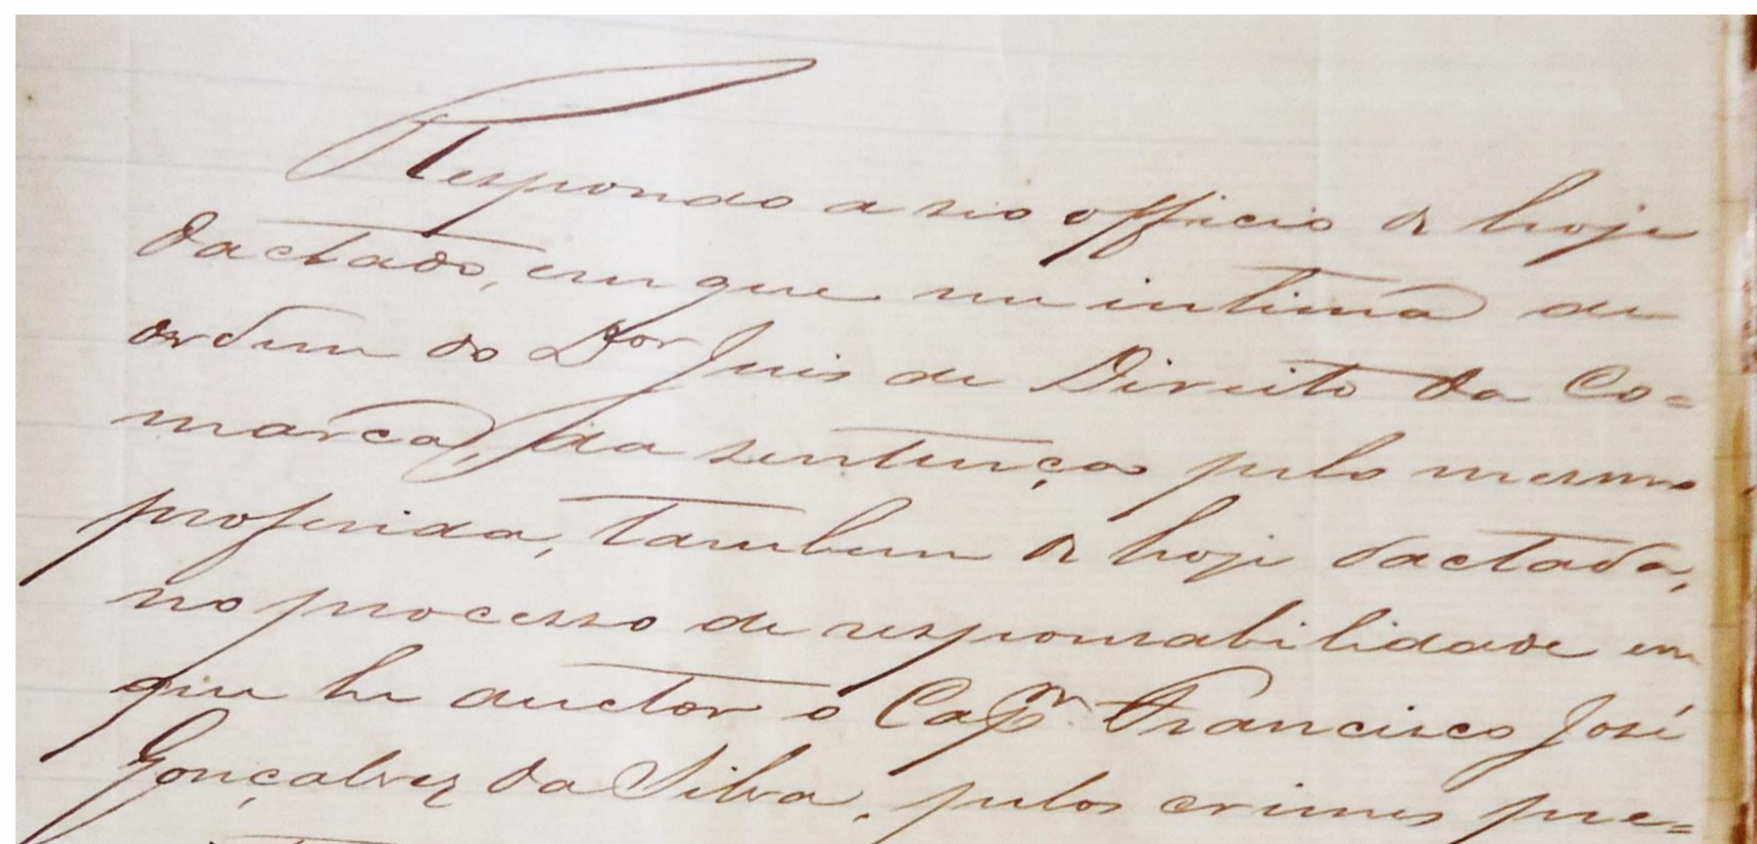 Respondo a seo officio de hoje
dactado, em que me intima de
ordem do Dor Juis de Direito da Co=
marca, da sentença pelo mesmo
proferida, tambem de hoje dactada,
no processo de responsabilidade em
que he auctor o Capm. Francisco José
Gonçalvez da Silva, pelos crimes pre=